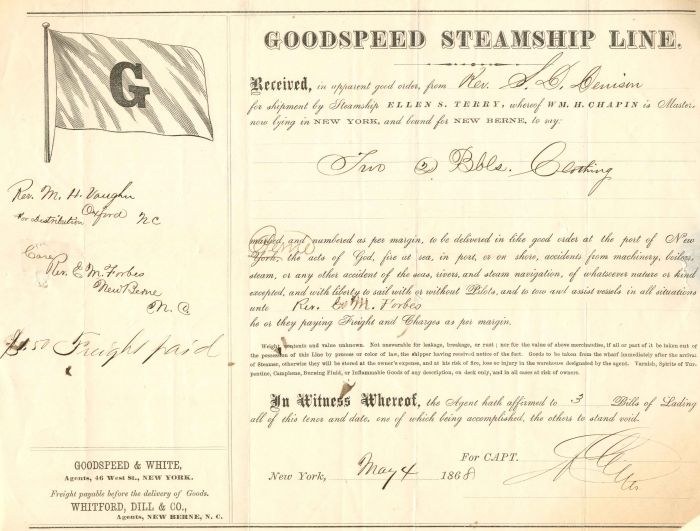 G
GOODSPEED STEAMSHIP LINE.
Received, in apparent good order, from Rev. S. D. Denison
for shipment by Steamship ELLEN S. TERRY, whereof WM. H. CHAPIN is Master
now lying in NEW YORK, and bound for NEW BERNE, to say:
Two (2) Bbls. Clothing
Rev. M. H. Vaughn
Oxford NC
For Distribution
Care
Rev. E. M. Forbes
New Berne
N. C.
$1.50 Freight paid
marked, and numbered as per margin, to be delivered in like good order at the port of New
York, the acts of God, fire at sea, in port, or on shore, accidents from machinery, boilers,
steam, or any other accident of the seas, rivers, and steam navigation, of whatsoever nature or kind
excepted, and with liberty to sail with or without Pilots, and to tow and assist vessels in all situations
unto Rev. E. M. Forbes
he or they paying Freight and Charges as per margin.
Weight, contents and value unknown. Not answerable for leakage, breakage, or rust; nor for the value of above merchandise, if all or part of it be taken out of
the possession of this Line by process or color of law, the shipper having received notice of the fact. Goods to be taken from the wharf immediately after the arrival
of Steamer, otherwise they will be stored at the owner's expense, and at his risk of fire, loss or injury in the warehouse designated by the agent. Varnish, Spirits of Tur-
pentine, Camphene, Burning Fluid, or Inflammable Goods of any description, on deck only, and in all cases at risk of owners.
In Witness Whereof, the Agent hath affirmed to 3 Bills of Lading
all of this tenor and date, one of which being accomplished, the others to stand void.
For CAPT.
New York, May 4 1868
GOODSPEED & WHITE,
Agents, 46 West St., NEW YORK.
Freight payable before the delivery of Goods.
WHITFORD, DILL & CO.,
Agents, NEW BERNE, N. C.